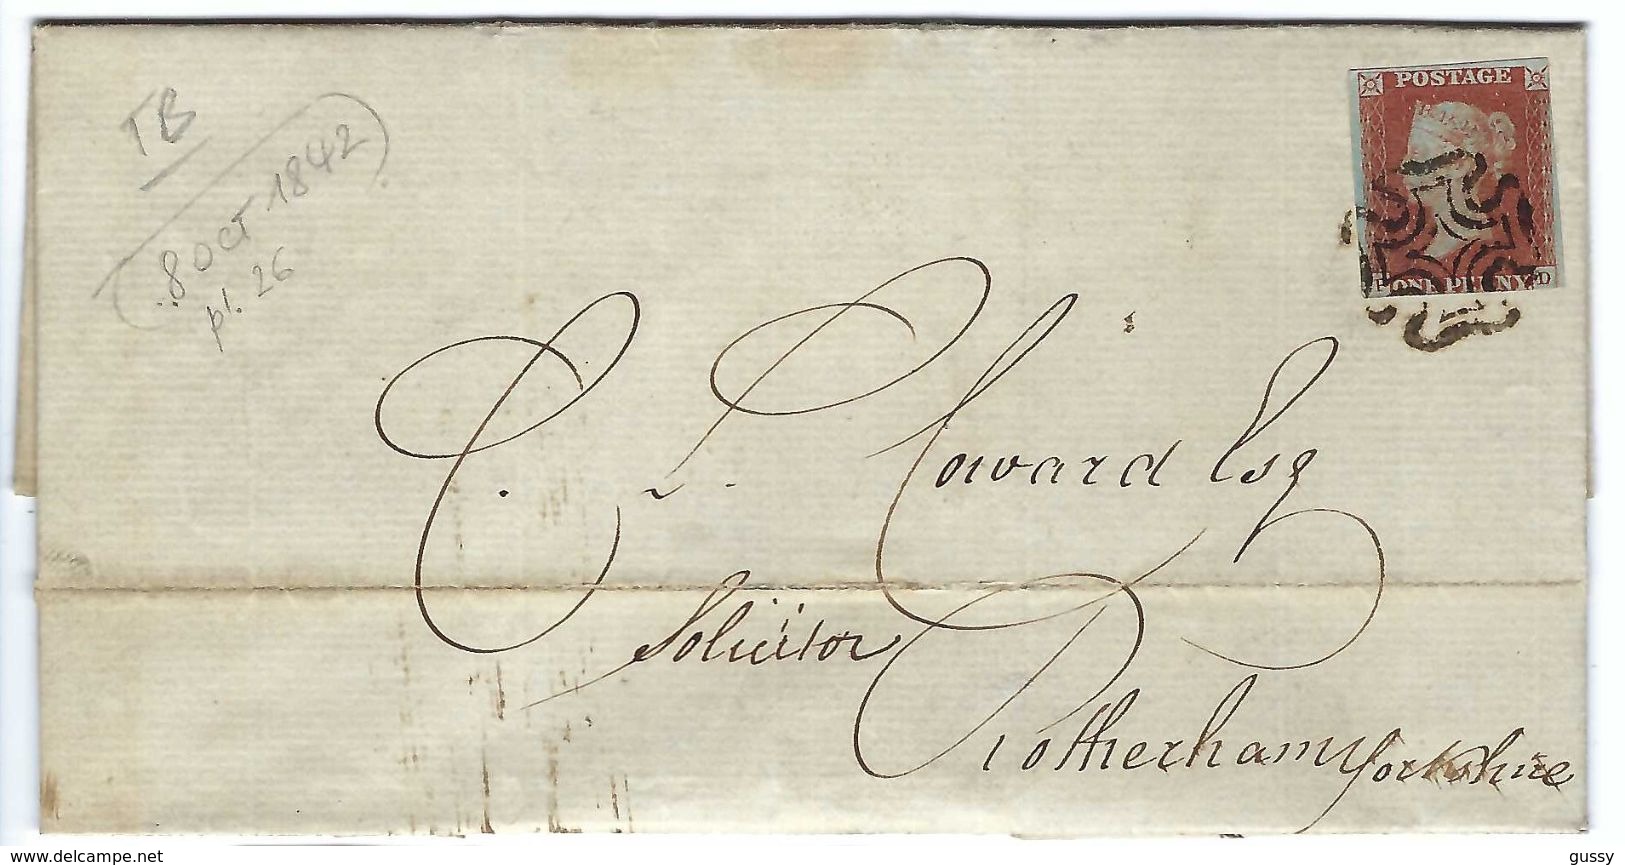 TB
8 OCT 1842
pl. 26
POSTAGE
ONE PENNY
D
C. L. Coward Esq
Solicitor
Rotherham Yorkshire
delcampe.net
gussy